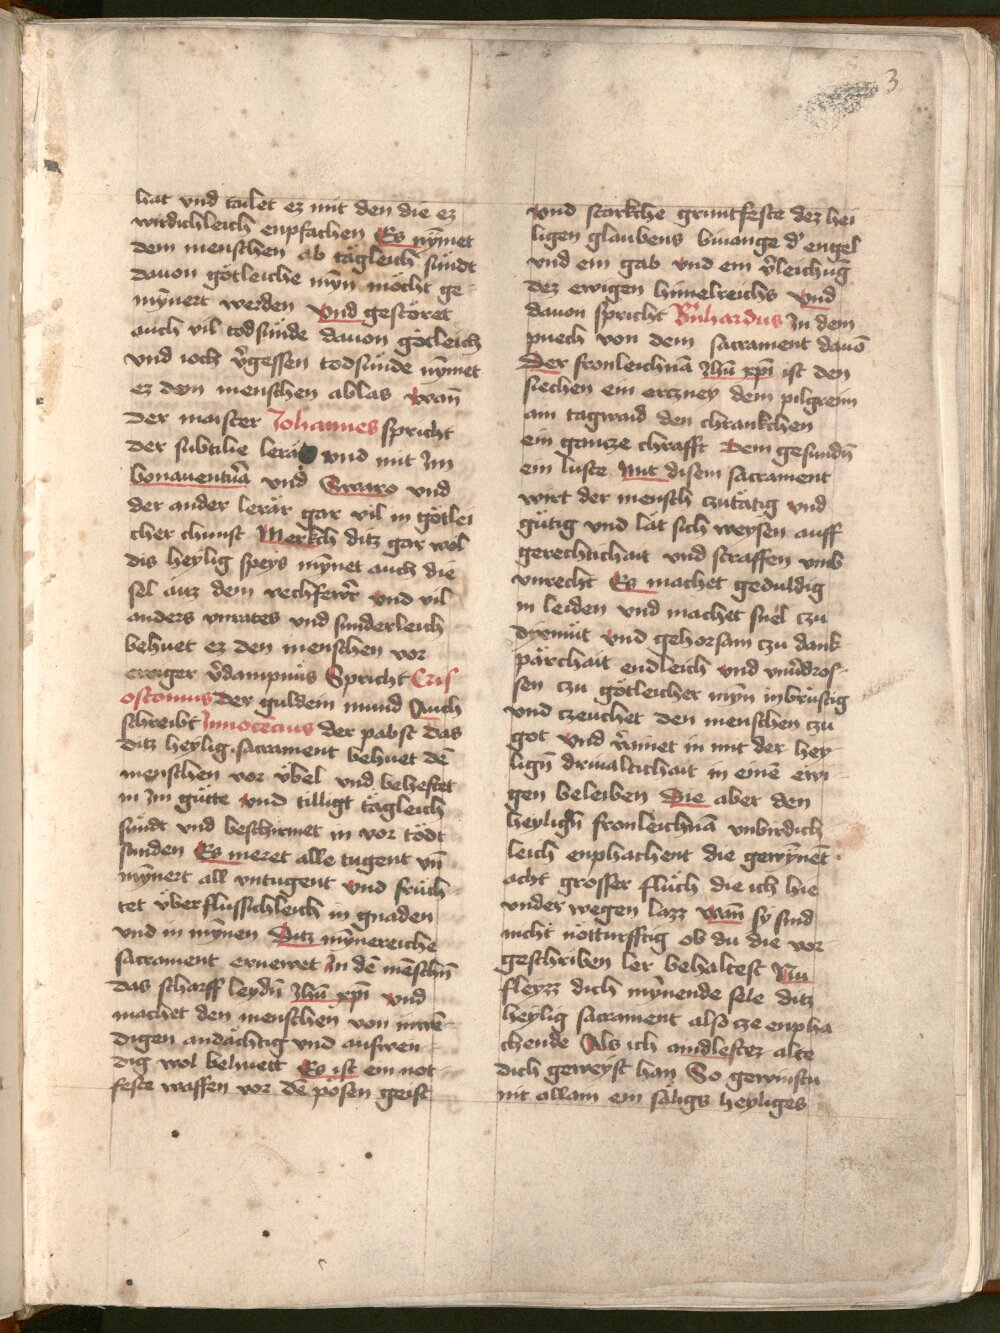 3
hat vnd tailet ez mit den die ez
wirdichleich enpfachen Es nÿmet
dem menschen ab tägleich sündt
dauon götleiche mÿn möcht ge-
mÿnert werden Vnd gestöret
auch vil todsünde dauon götleich
vnd ioch v̄gessen todsünde nÿmet
ez dem menschen ablas Wan̄
der maister Johannes spricht
der subtilie lerär vnd mit Im
bonauentur̄a vnd Swaro vnd
der ander lerär gar vil in götlei
cher chunst Merkch ditz gar wol
dis heylig speys nÿmet auch die
sel auz dem vechfewr̄ vnd vil
anders vnrates vnd sunderleich
behuet ez den menschen vor
ewiger v̄dampnüs Spricht Cris
ostomus der guldein mund Auch
schreibt Innocēcius der pabst das
ditz heylig sacrament behuet dē
menschen vor vbel vnd beheftet
in Im gütte vnd tilligt tägleich
sündt vnd beschirmet in vor tödt
sünden Es meret alle tugent vn̄
mÿnert all vntugent vnd früch
tet vberflüssichleich in gnaden
vnd in mÿnen Ditz mÿnereiche
sacrament ernewet In dē mēschn̄
das scharff leydn̄ Jhū xp̄i vnd
machet den menschen von inwē-
digen andächtig vnd auswen
dig wol behuett Es ist ein not
feste waffen vor dē pösen geist
vnd starkche gruntfeste dez hei
ligen glaubens biuange d' engel
vnd ein gab vnd ein v̄leichūg
dez ewigen himelreichs Vnd
dauon spricht Bn̄hardus In dem
puech von dem sacrament dauō
Der fronleichnā Jhū xp̄i ist den
siechen ein erczney dem pilgreim
am tagwaid den chrankchen
ein gancze chrafft Dem gesundn̄
ein luste Mit disem sacrament
wirt der mensch czutätig vnd
gütig vnd lät sich weysen auff
gerechtichait vnd straffen vmb
vnrecht Es machet geduldig
in leiden vnd machet snel czu
dÿemüt vnd gehorsam czu dank
pärchait endleich vnd vnv̄dros-
sen czu götleicher mÿn inbrüstig
vnd czeuchet den menschen czu
got vnd v̄ainet in mit der hey-
lign̄ driualtichait in einē ewi-
gen beleiben Die aber den
heylign̄ fronleichnā vnbirdich
leich enphachent die gewÿnēt
acht grosser flüch die ich hie
vnder wegen lazz Wan̄ sÿ sind
nicht nötturfftig ob du die vor-
geschriben ler behaltest Nu
fleyzz dich mÿnende sele ditz
heylig sacrament also cze enpha
chende Als ich amdlestez alte
dich geweyst han So gewinstu
nit allain ein säligs heyliges